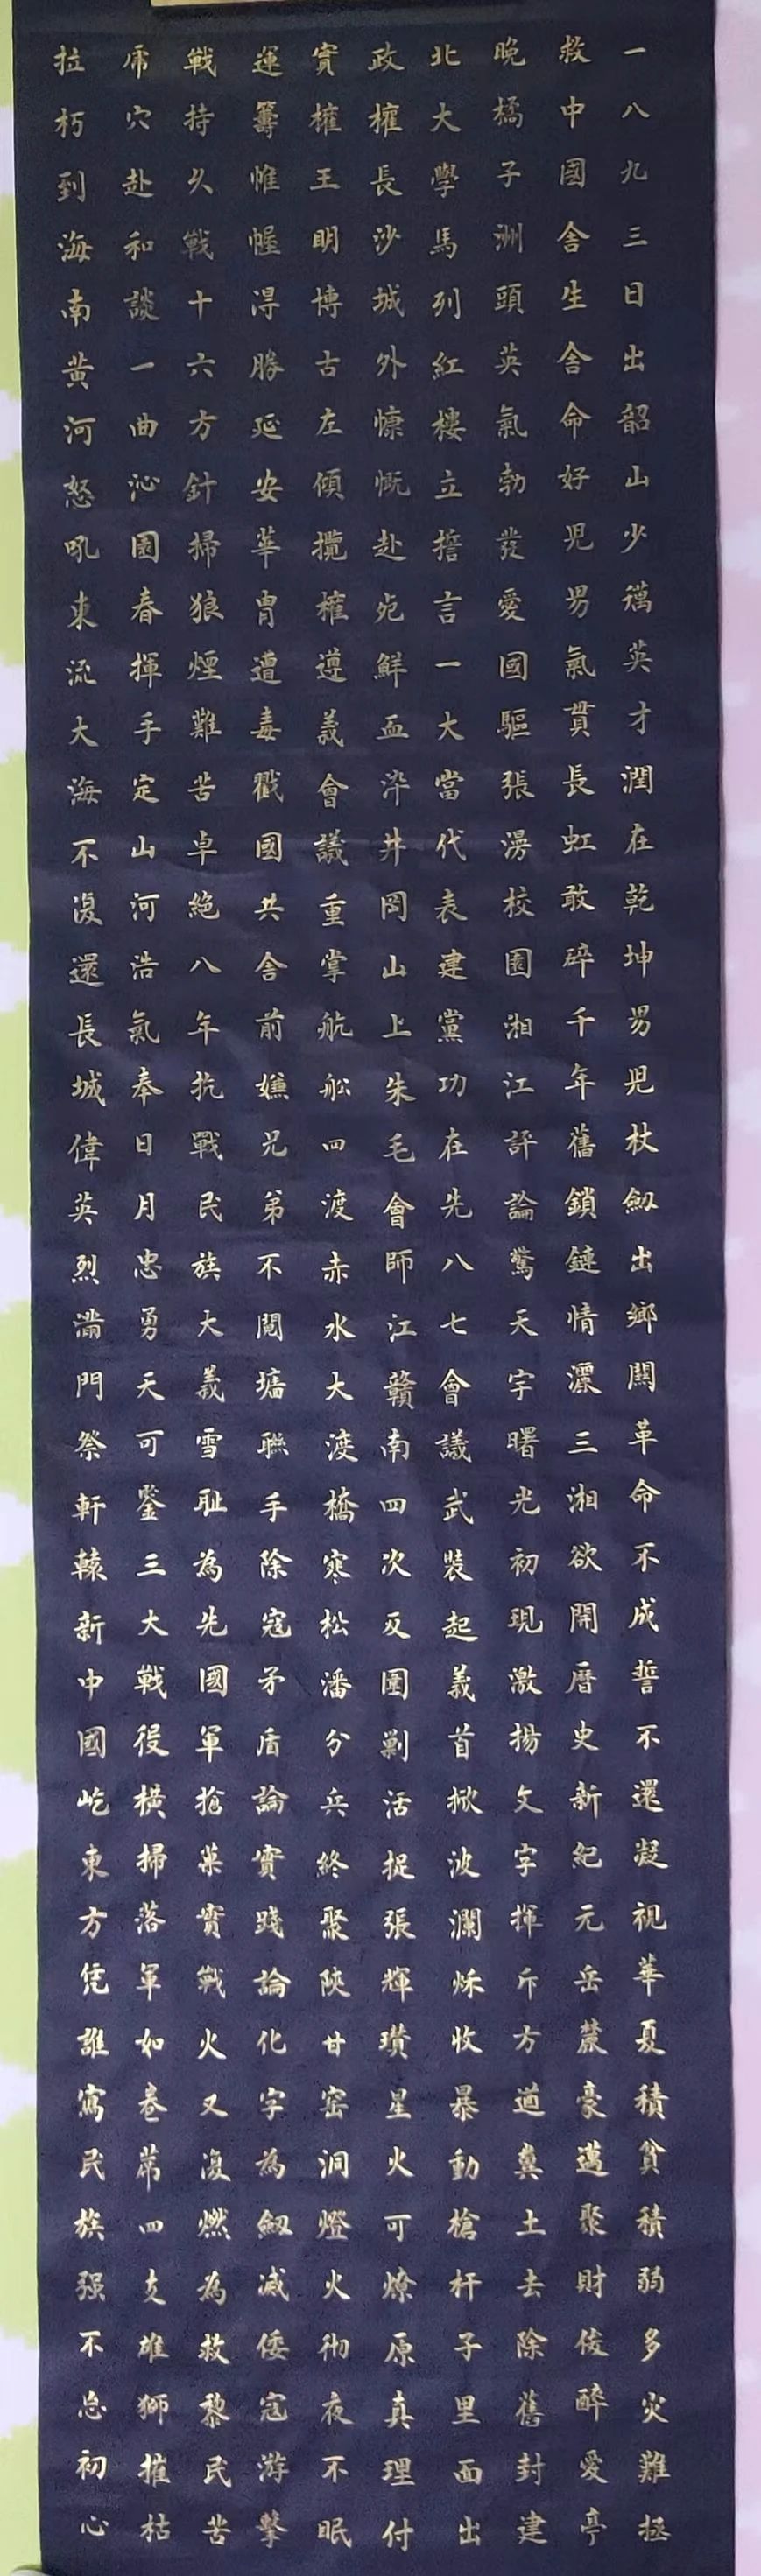 一八九三日出韶山少懷英才潤在乾坤男児杖劔出鄉關革命不成誓不還凝視華夏積貧積弱多災難拯
救中國舍生舍命好児男氣貫長虹敢碎千年舊鎖鏈情灑三湘欲開曆史新紀元岳麓豪邁聚財俊醉愛亭
晚橘子洲頭英氣勃發愛國驅張湯校園湘江評論驚天宇曙光初現激揚文字揮斥方遒糞土去除舊封建
北大學馬列紅樓立誓言一大當代表建黨功在先八七會議武裝起義首掀波瀾秌收暴動槍杆子里面出
政權長沙城外慷慨赴宛鮮血染井岡山上朱毛會師江贛南四次反圍剿活捉張輝瓚星火可燎原真理付
實權王明博古左傾攬權遵義會議重掌航船四渡赤水大渡橋寒松潘分兵終聚陝甘窑洞燈火彻夜不眠
運籌帷幄得勝延安華胄遭毒戳國共舍前嫌兄弟不鬩墻聯手除寇矛盾論實踐論化字為劔減倭寇游擊
戰持久戰十六方針掃狼煙難苦卓絕八年抗戰民族大義雪耻為先國軍搶菓實戰火又復燃為救黎民苦
席穴赴和談一曲沁園春揮手定山河浩氣奉日月忠勇天可鑒三大戰役橫掃落軍如卷席四支雄獅摧枯
拉朽到海南黃河怒吼東流大海不復還長城偉英烈滿門祭軒轅新中國屹東方凭誰寫民族强不忘初心